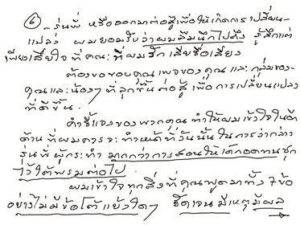 (6)
-รุ่นพี่ หรือออกมาต่อสู้เพื่อให้เกิดการเปลี่ยน
แปลง ผมยอมรับว่าผมลืมนึกไปถึง รู้สึกแต่
เพียงเสียใจ ที่คณะ ที่ผมรัก เสียชื่อเสียง
ต้องขอขอบคุณ เพจของคุณ และ กลุ่มของ
คุณและน้องๆ ที่ลุกขึ้นต่อสู้ เพื่อการเปลี่ยนแปลง
ที่ดีขึ้น
คำชี้แจงของพวกคุณ ทำให้ผมเข้าใจในด้าน
ด้าน ที่ผมควรจะ ทำหน้าที่วันนั้น ในการว่ากล่าว
รุ่นพี่ ผู้กระทำ มากกว่าการสอนให้เด็กอดทนซุก
ไว้ใต้พรมต่อไป
ผมเข้าใจทุกสิ่งที่คุณพูดมาทั้ง 7 ข้อ
อย่างไม่มีข้อโต้แย้งใดๆ ชัดเจน มีเหตุมีผล